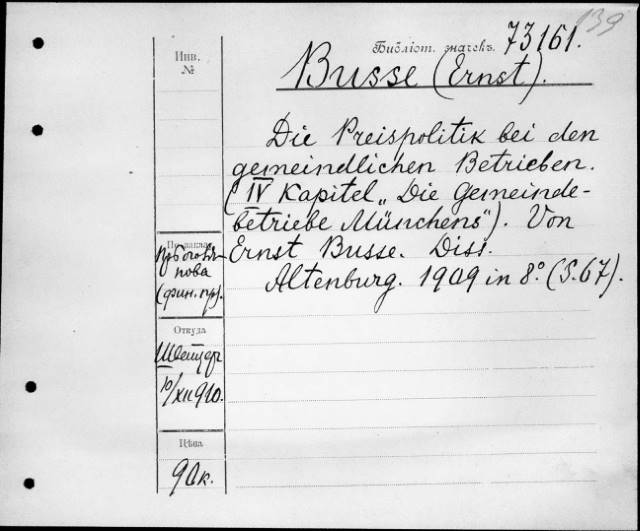 139
Библіот. значекъ. 73161.
Инв.
№
Busse (Ernst).
Die Preispolitik bei den
gemeindlichen Betrieben.
(IV Kapitel „Die Gemeinde-
betriebe Münchens"). Von
Ernst Busse. Diss.
Altenburg. 1909 in 8° (S. 67).
По заказу
пова
(фин. пр).
Откуда
10/XII 910.
Цѣна
90к.